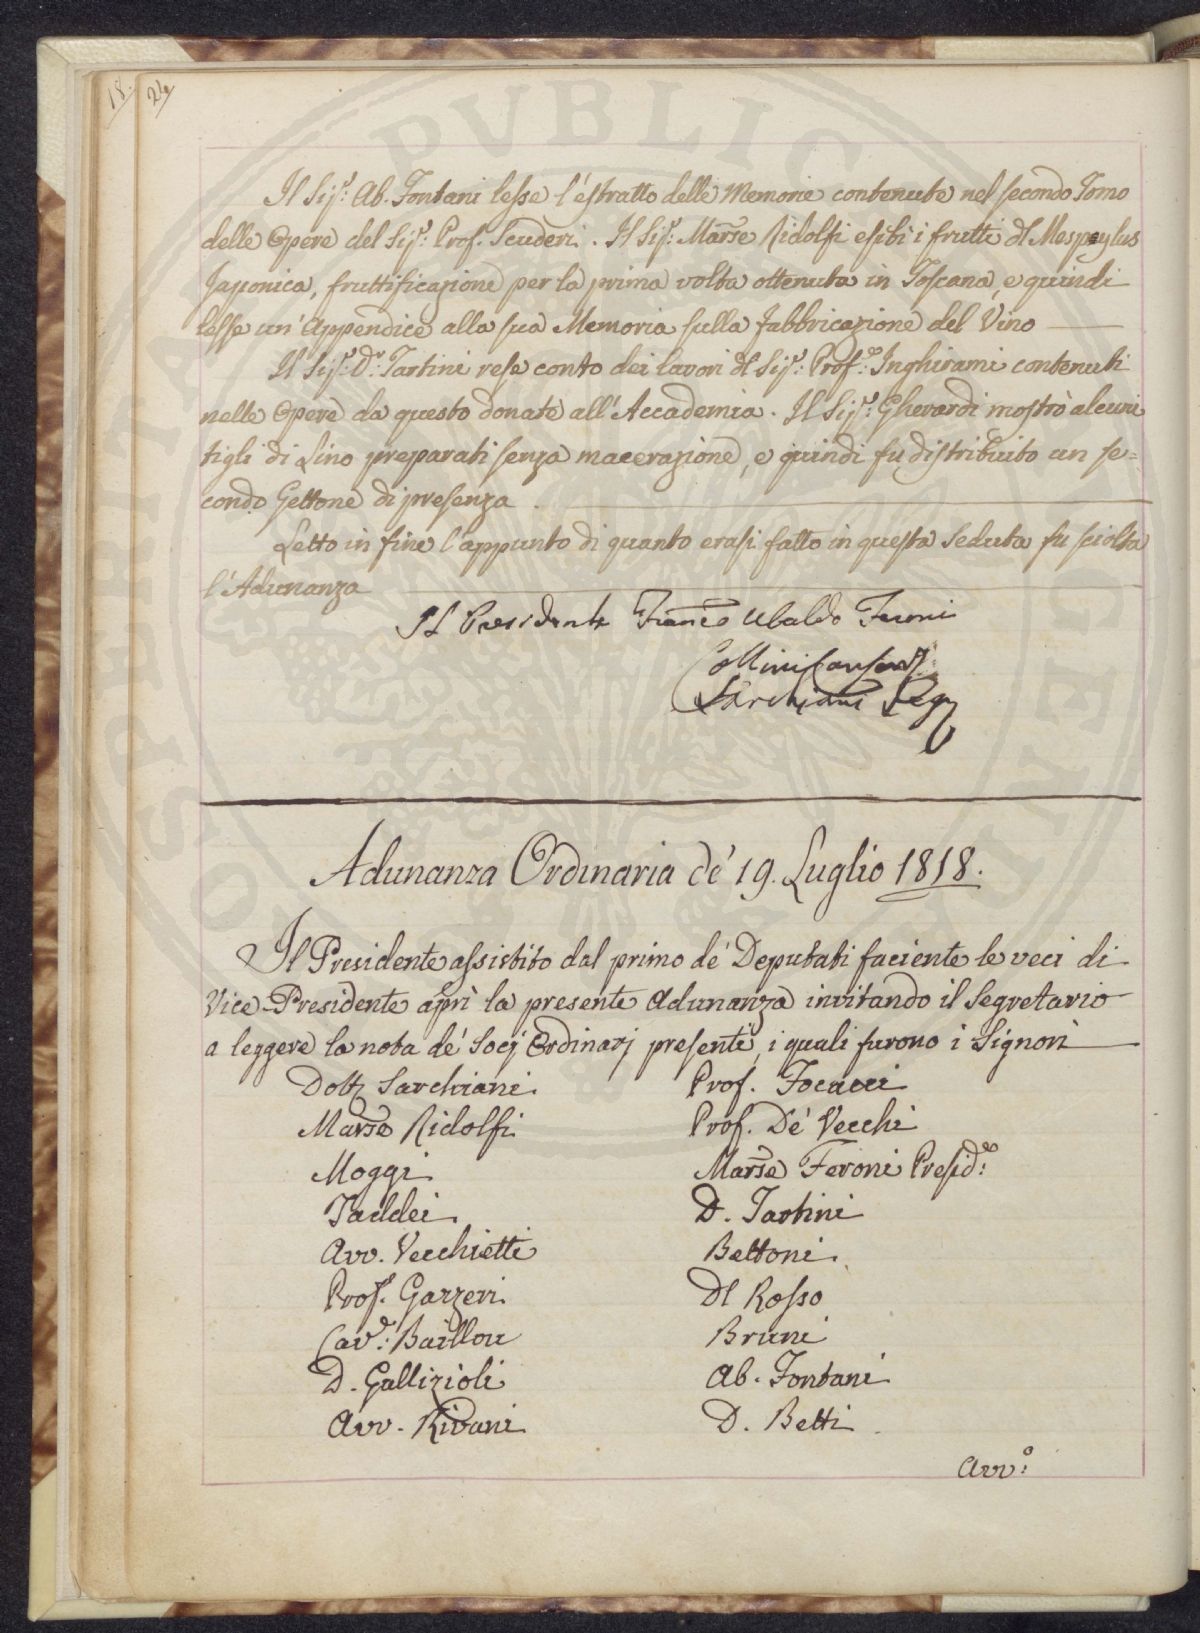 18.
24
Il Sig.r Ab. Fontani lesse l'estratto delle Memorie contenute nel secondo Tomo
delle Opere del Sig.r Prof. Scuderi. Il Sig.r Marse Ridolfi esibì i frutti dl Mespylus
Japonica, fruttificazione per la prima volta ottenuta in Toscana, e quindi
lesse un'Appendice alla sua Memoria sulla fabbricazione del Vino
Il Sig.r D.r Tartini rese conto dei lavori dl Sig.r Prof.e Inghirami contenuti
nelle Opere da questo donate all'Accademia. Il Sig.r Gherardi mostrò alcuni
tigli di Lino preparati senza macerazione, e quindi fu distribuito un se=
condo Gettone di presenza.
Letto in fine l'appunto di quanto erasi fatto in questa Seduta fu sciolta
l'Adunanza
Il Presidente Franco Ubaldo Feroni
Sarchiani Seg
Adunanza Ordinaria de' 19. Luglio 1818.
Il Presidente assistito dal primo de' Deputati faciente le veci di
Vice-Presidente aprì la presente Adunanza invitando il Segretario
a leggere la nota de' Socj Ordinarj presenti, i quali furono i Signori
Dott Sarchiani. Prof. Focacci
Marse Ridolfi Prof. De' Vecchi
Moggi Marse Feroni Presid.e
Taddei. D. Tartini
Avv. Vecchietti Bettoni.
Prof. Gazzeri. Dl Rosso
Cav.e Baillou Bruni
D. Gallizioli Ab. Fontani
Avv. Rivani D. Betti
Avv.o
PVBLICAE